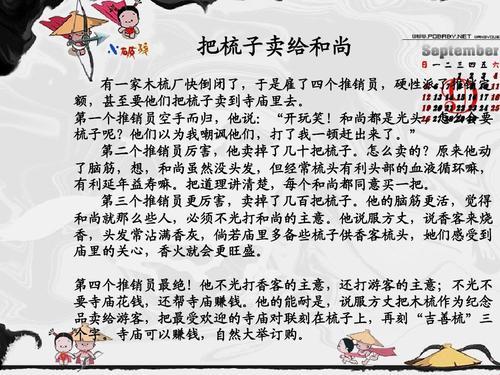 WWW.PCBABY.NET
September
把梳子卖给和尚
日 一 二 三 四 五 六
有一家木梳厂快倒闭了，于是雇了四个推销员，硬性派了推销定
额，甚至要他们把梳子卖到寺庙里去。
第一个推销员空手而归，他说：“开玩笑！和尚都是光头，怎么会要
梳子呢？他们以为我嘲讽他们，打了我一顿赶出来了。”
第二个推销员厉害，他卖掉了几十把梳子。怎么卖的？原来他动
了脑筋，想，和尚虽然没头发，但经常梳头有利头部的血液循环嘛，
有利延年益寿嘛。把道理讲清楚，每个和尚都同意买一把。
第三个推销员更厉害，卖掉了几百把梳子。他的脑筋更活，觉得
和尚就那么些人，必须不光打和尚的主意。他说服方丈，说香客来烧
香，头发常沾满香灰，倘若庙里多备些梳子供香客梳头，她们感受到
庙里的关心，香火就会更旺盛。
第四个推销员最绝！他不光打香客的主意，还打游客的主意；不光不
要寺庙花钱，还帮寺庙赚钱。他的能耐是，说服方丈把木梳作为纪念
品卖给游客，把最受欢迎的寺庙对联刻在梳子上，再刻“吉善梳”三
个字，寺庙可以赚钱，自然大举订购。